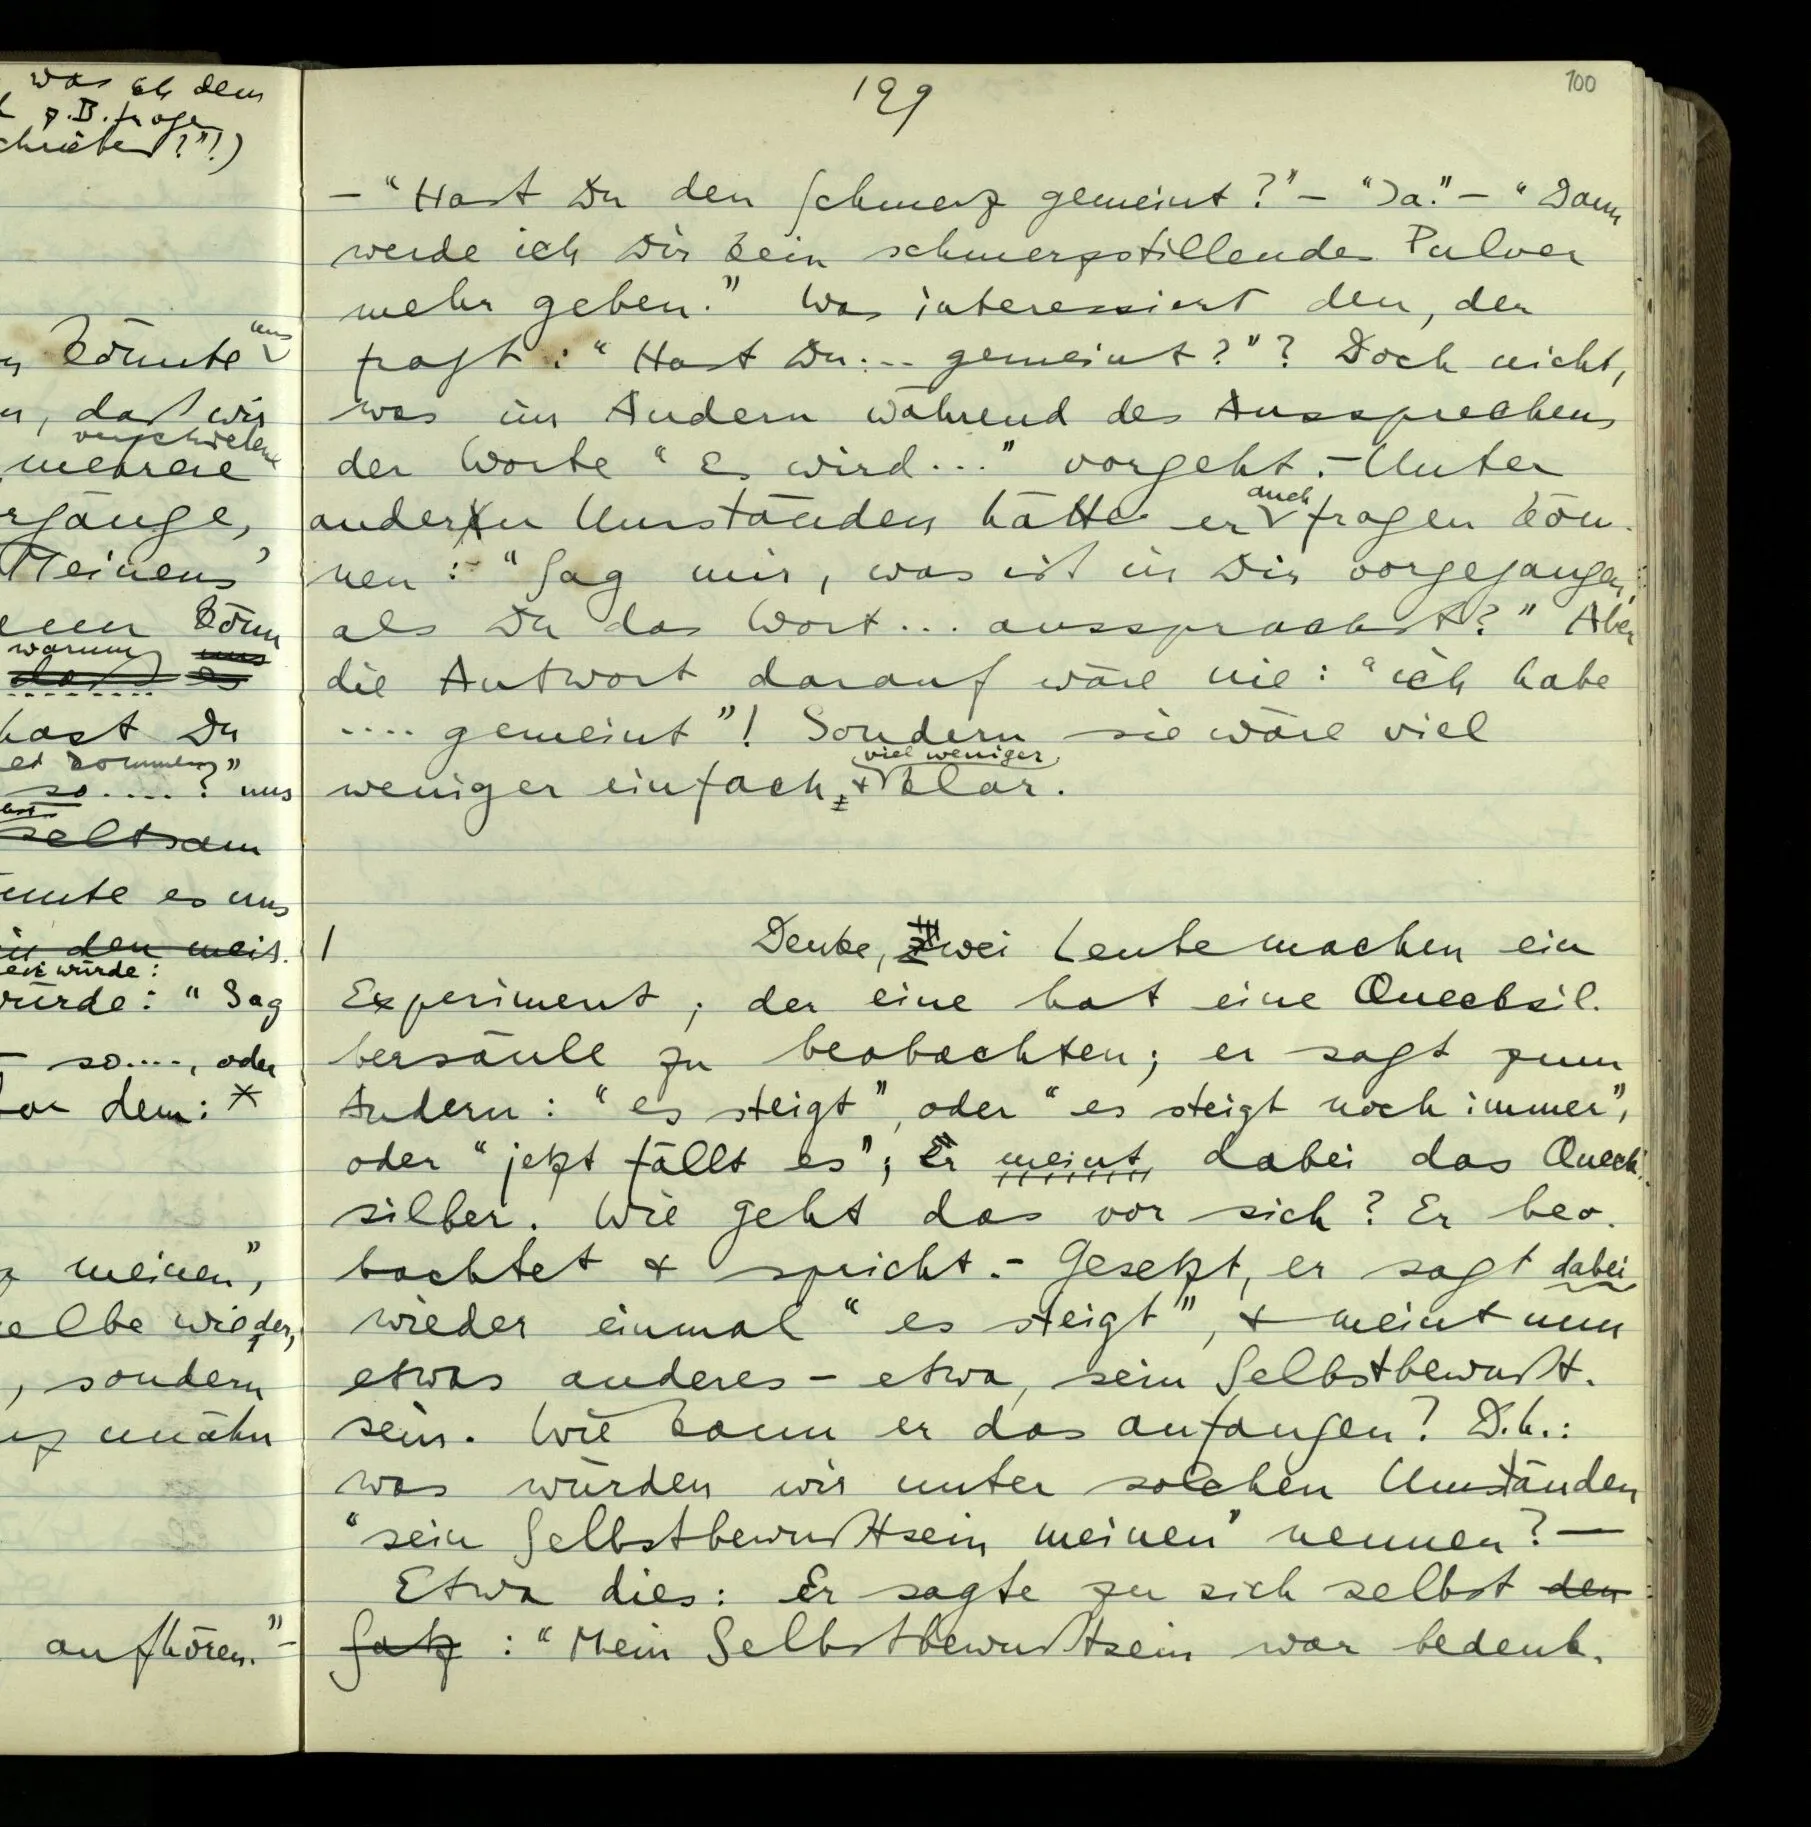 was ich dem
z.B. frage
199
100
– "Hast Du den Schmerz gemeint?" – "Ja." – "Dann
werde ich Dir kein schmerzstillendes Pulver
mehr geben." Was interessiert den, der
fragt: "Hast Du ... gemeint?"? Doch nicht,
was im Andern während des Aussprechens
der Worte "Es wird..." vorgeht. – Unter
andern Umständen hätte er auch fragen kön-
nen: "Sag mir, was ist in Dir vorgegangen,
als Du das Wort ... aussprachst?" Aber
die Antwort darauf wäre nie: "ich habe
.... gemeint"! Sondern sie wäre viel
viel weniger
weniger einfach, + klar.
Denke, zwei Leute machen ein
Experiment; der eine hat eine Quecksil-
bersäule zu beobachten; er sagt zum
Andern: "es steigt", oder "es steigt noch immer",
oder "jetzt fällt es"; Er meint dabei das Queck-
silber. Wie geht das vor sich? Er beo-
bachtet + spricht. – Gesetzt, er sagt dabei
wieder einmal "es steigt", + meint nun
etwas anderes – etwa, sein Selbstbewußt-
sein. Wie kann er das anfangen? D.h.:
was würden wir unter solchen Umständen
"sein Selbstbewußtsein meinen" nennen? –
Etwa dies: Er sagte zu sich selbst den
Satz: "Mein Selbstbewußtsein war bedenk-
könnte uns
daß wir
verschiedene
mehrere
Meinens'
könn
warum uns
daß es
hast Du
kommen"
so....? uns
seltsam
es uns
in den meis-
würde:
würde: "Sag
so...., oder
dem: *
meinen",
wieder,
, sondern
unähn
aufhören." –